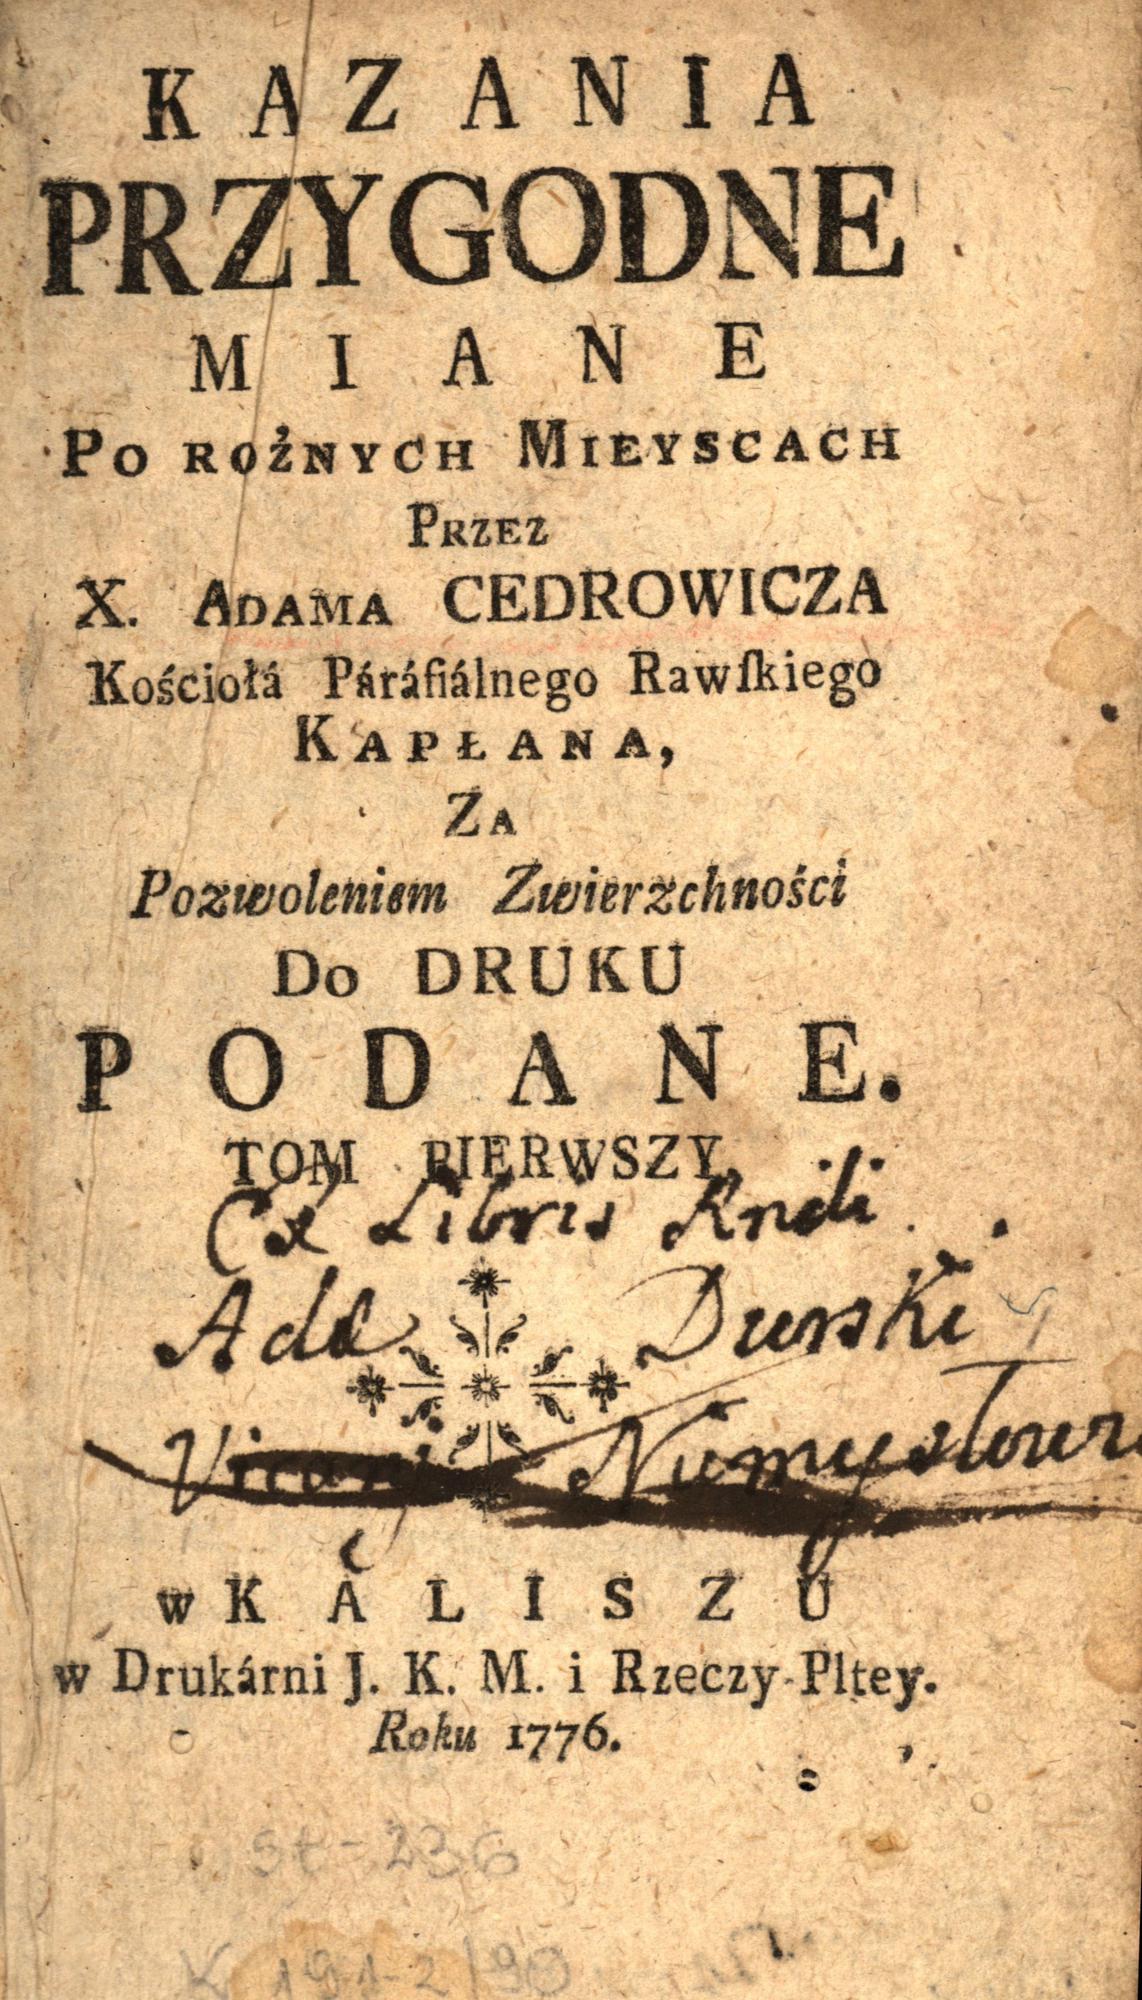 KAZANIA
PRZYGODNE
MIANE
PO ROŻNYCH MIEYSCACH
PRZEZ
X. ADAMA CEDROWICZA
Kościołá Páráfiálnego Rawſkiego
KAPŁANA,
ZA
Pozwoleniem Zwierzchności
Do DRUKU
PODANE.
TOM PIERWSZY.
Ex Libris Rndi
Ada Durski
Vicarj
w KALISZU
w Drukárni J. K. M. i Rzeczy-Pltey.
Roku 1776.
st-236